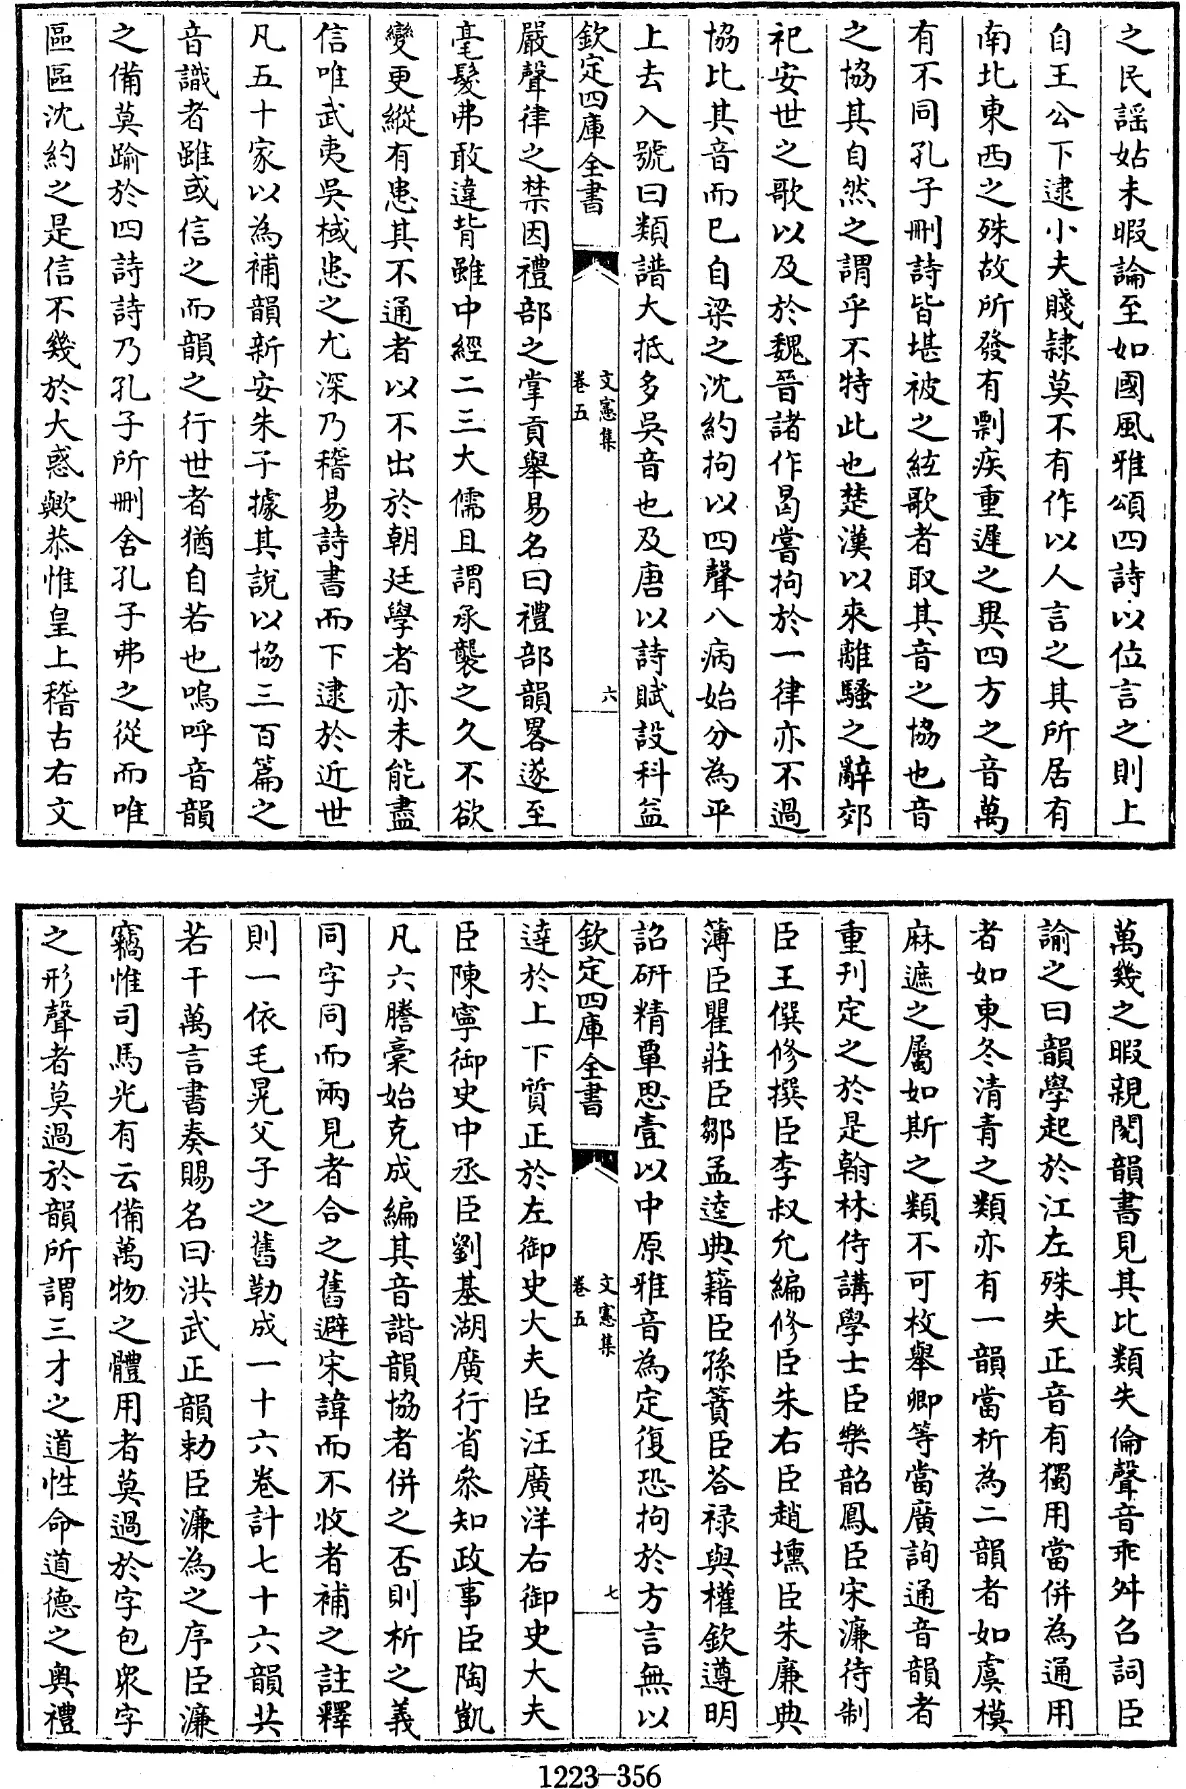 之民謡姑未暇論至如國風雅頌四詩以位言之則上
自王公下逮小夫賤隷莫不有作以人言之其所居有
南北東西之殊故所發有剽疾重遲之異四方之音萬
有不同孔子刪詩皆堪被之絃歌者取其音之協也音
之協其自然之謂乎不特此也楚漢以來離騷之辭郊
祀安世之歌以及於魏晉諸作曷嘗拘於一律亦不過
協比其音而已自梁之沈約拘以四聲八病始分為平
上去入號曰類譜大抵多吳音也及唐以詩賦設科益
欽定四庫全書
文憲集
卷五
六
嚴聲律之禁因禮部之掌貢舉易名曰禮部韻畧遂至
毫髮弗敢違背雖中經二三大儒且謂承襲之久不欲
變更縱有患其不通者以不出於朝廷學者亦未能盡
信唯武夷吳棫患之尤深乃稽易詩書而下逮於近世
凡五十家以為補韻新安朱子據其說以協三百篇之
音識者雖或信之而韻之行世者猶自若也嗚呼音韻
之備莫踰於四詩詩乃孔子所刪舍孔子弗之從而唯
區區沈約之是信不幾於大惑歟恭惟皇上稽古右文
萬幾之暇親閱韻書見其比類失倫聲音乖舛召詞臣
諭之曰韻學起於江左殊失正音有獨用當併為通用
者如東冬清青之類亦有一韻當析為二韻者如虞模
麻遮之屬如斯之類不可枚舉卿等當廣詢通音韻者
重刋定之於是翰林侍講學士臣樂韶鳳臣宋濂待制
臣王僎修撰臣李叔允編修臣朱右臣趙壎臣朱廉典
簿臣瞿莊臣鄒孟逵典籍臣孫蕡臣荅禄與權欽遵明
詔研精覃思壹以中原雅音為定復恐拘於方言無以
欽定四庫全書
文憲集
卷五
七
達於上下質正於左御史大夫臣汪廣洋右御史大夫
臣陳寧御史中丞臣劉基湖廣行省叅知政事臣陶凱
凡六謄稾始克成編其音諧韻協者併之否則析之義
同字同而兩見者合之舊避宋諱而不收者補之註釋
則一依毛晃父子之舊勒成一十六卷計七十六韻共
若干萬言書奏賜名曰洪武正韻勅臣濂為之序臣濂
竊惟司馬光有云備萬物之體用者莫過於字包衆字
之形聲者莫過於韻所謂三才之道性命道德之奧禮
1223-356